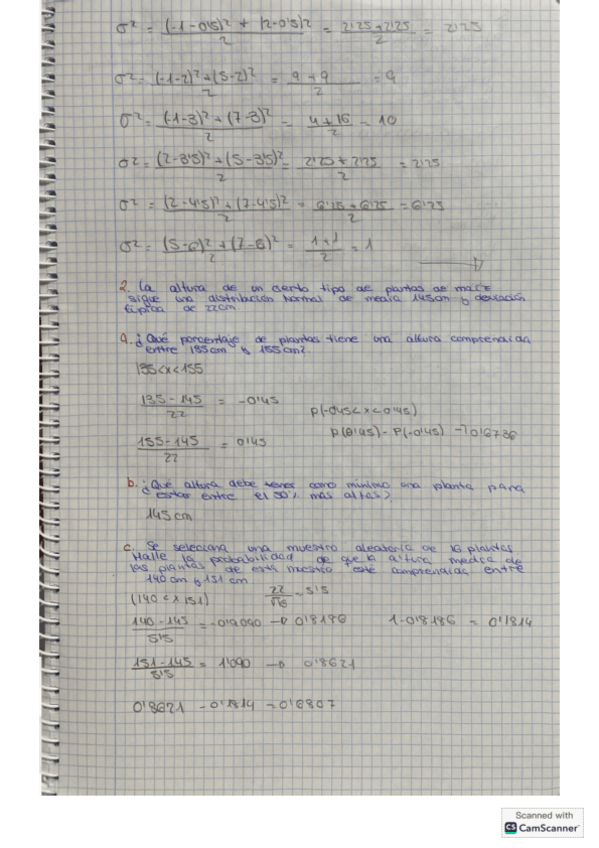 σ² = (-1-0'5)² + (2-0'5)² / 2 = 2'25+2'25 / 2 = 2'25
σ² = (-1-2)² + (5-2)² / 2 = 9+9 / 2 = 9
σ² = (-1-3)² + (7-3)² / 2 = 4+16 / 2 = 10
σ² = (2-3'5)² + (5-3'5)² / 2 = 2'25+2'25 / 2 = 2'25
σ² = (2-4'5)² + (7-4'5)² / 2 = 6'25+6'25 / 2 = 6'25
σ² = (5-6)² + (7-6)² / 2 = 1+1 / 2 = 1
2. La altura de un cierto tipo de plantas de maíz
sigue una distribución Normal de media 145cm y desviación
típica de 22cm.
a. ¿Qué porcentaje de plantas tiene una altura comprendida
entre 135cm y 155cm?
135<x<155
135-145 / 22 = -0'45
P(-0'45<x<0'45)
P(0'45) - P(-0'45) → 0'6736
155-145 / 22 = 0'45
b. ¿Qué altura debe tener como mínimo una planta para
estar entre el 50% más altas?
145cm
c. Se selecciona una muestra aleatoria de 16 plantas
Halle la probabilidad de que la altura media de
las plantas de esta muestra esté comprendida entre
140cm y 151 cm
(140<x<151) 22 / √16 = 5'5
140-145 / 5'5 = -0'9090 → 0'8186 1-0'8186 = 0'1814
151-145 / 5'5 = 1'090 → 0'8621
0'8621 - 0'1814 = 0'6807
Scanned with
CS CamScanner